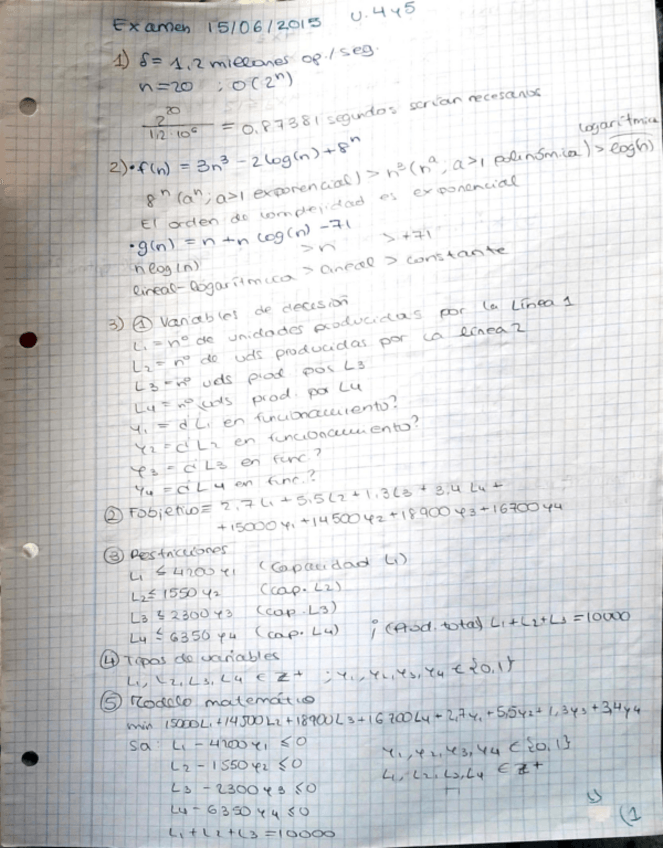 Examen 15/06/2015 U.4y5
1) f = 1,2 millones op./seg.
n=20 ; O(2ⁿ)
2²⁰ / 1,2·10⁶ = 0,87381 segundos serían necesarios
2) • f(n) = 3n³ - 2log(n) + 8ⁿ
logarítmica
8ⁿ (aⁿ, a>1 exponencial) > n³ (nᵃ, a>1 polinómica) > log(n)
El orden de complejidad es exponencial
• g(n) = n + n log(n) - 71
n log(n) > n > +71
lineal-logarítmica > lineal > constante
3) ① Variables de decisión
L₁ = nº de unidades producidas por la Línea 1
L₂ = nº de uds producidas por la línea 2
L3 = nº uds prod por L3
L4 = nº uds prod. por L4
Y₁ = ¿L₁ en funcionamiento?
Y₂ = ¿L₂ en funcionamiento?
Y₃ = ¿L3 en func.?
Y4 = ¿L4 en func.?
② Fobjetivo = 2,7L₁ + 5,5L2 + 1,3L3 + 3,4L4 +
+ 15000Y₁ + 14500Y2 + 18900Y3 + 16700Y4
③ Restricciones
L₁ ≤ 4200Y1 (Capacidad L₁)
L₂ ≤ 1550Y2 (cap. L2)
L3 ≤ 2300Y3 (cap. L3)
L4 ≤ 6350Y4 (cap. L4) ; (Prod. total) L₁+L₂+L₃=10000
④ Tipos de variables
L₁, L2, L3, L4 ∈ Z+ ; Y₁, Y2, Y3, Y4 ∈ {0,1}
⑤ Modelo matemático
min 15000L₁+14500L2+18900L3+16700L4+2,7Y₁+5,5Y2+1,3Y3+3,4Y4
sa: L₁ - 4200Y₁ ≤ 0
L2 - 1550Y2 ≤ 0 Y₁, Y2, Y3, Y4 ∈ {0,1}
L3 - 2300Y3 ≤ 0 L₁, L2, L3, L4 ∈ Z+
L4 - 6350Y4 ≤ 0
L₁+L2+L3=10000
(1